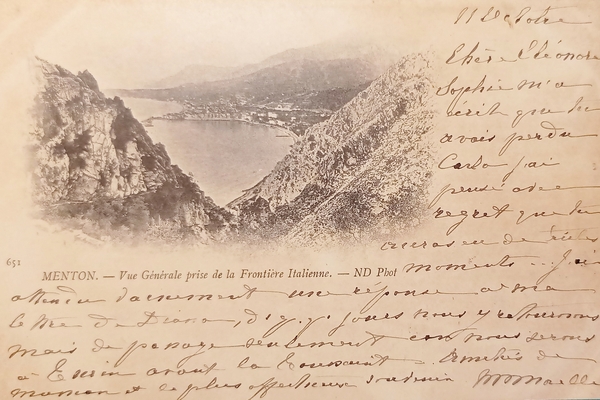 11 Octobre
Chère Eléonore
Sophie m'a
écrit que tu
avais perdu
Carlo j'ai
pensé avec
regret que tu
auras eu de tristes
moments... J'ai
651
MENTON. — Vue Générale prise de la Frontière Italienne. — ND Phot
attendu vainement une réponse à ma
lettre de Diano, d'. q.q. jours nous y retournons
mais de passage seulement car nous serons
à Turin avant la Toussaint. Amitiés de
maman et le plus affectueux souvenir